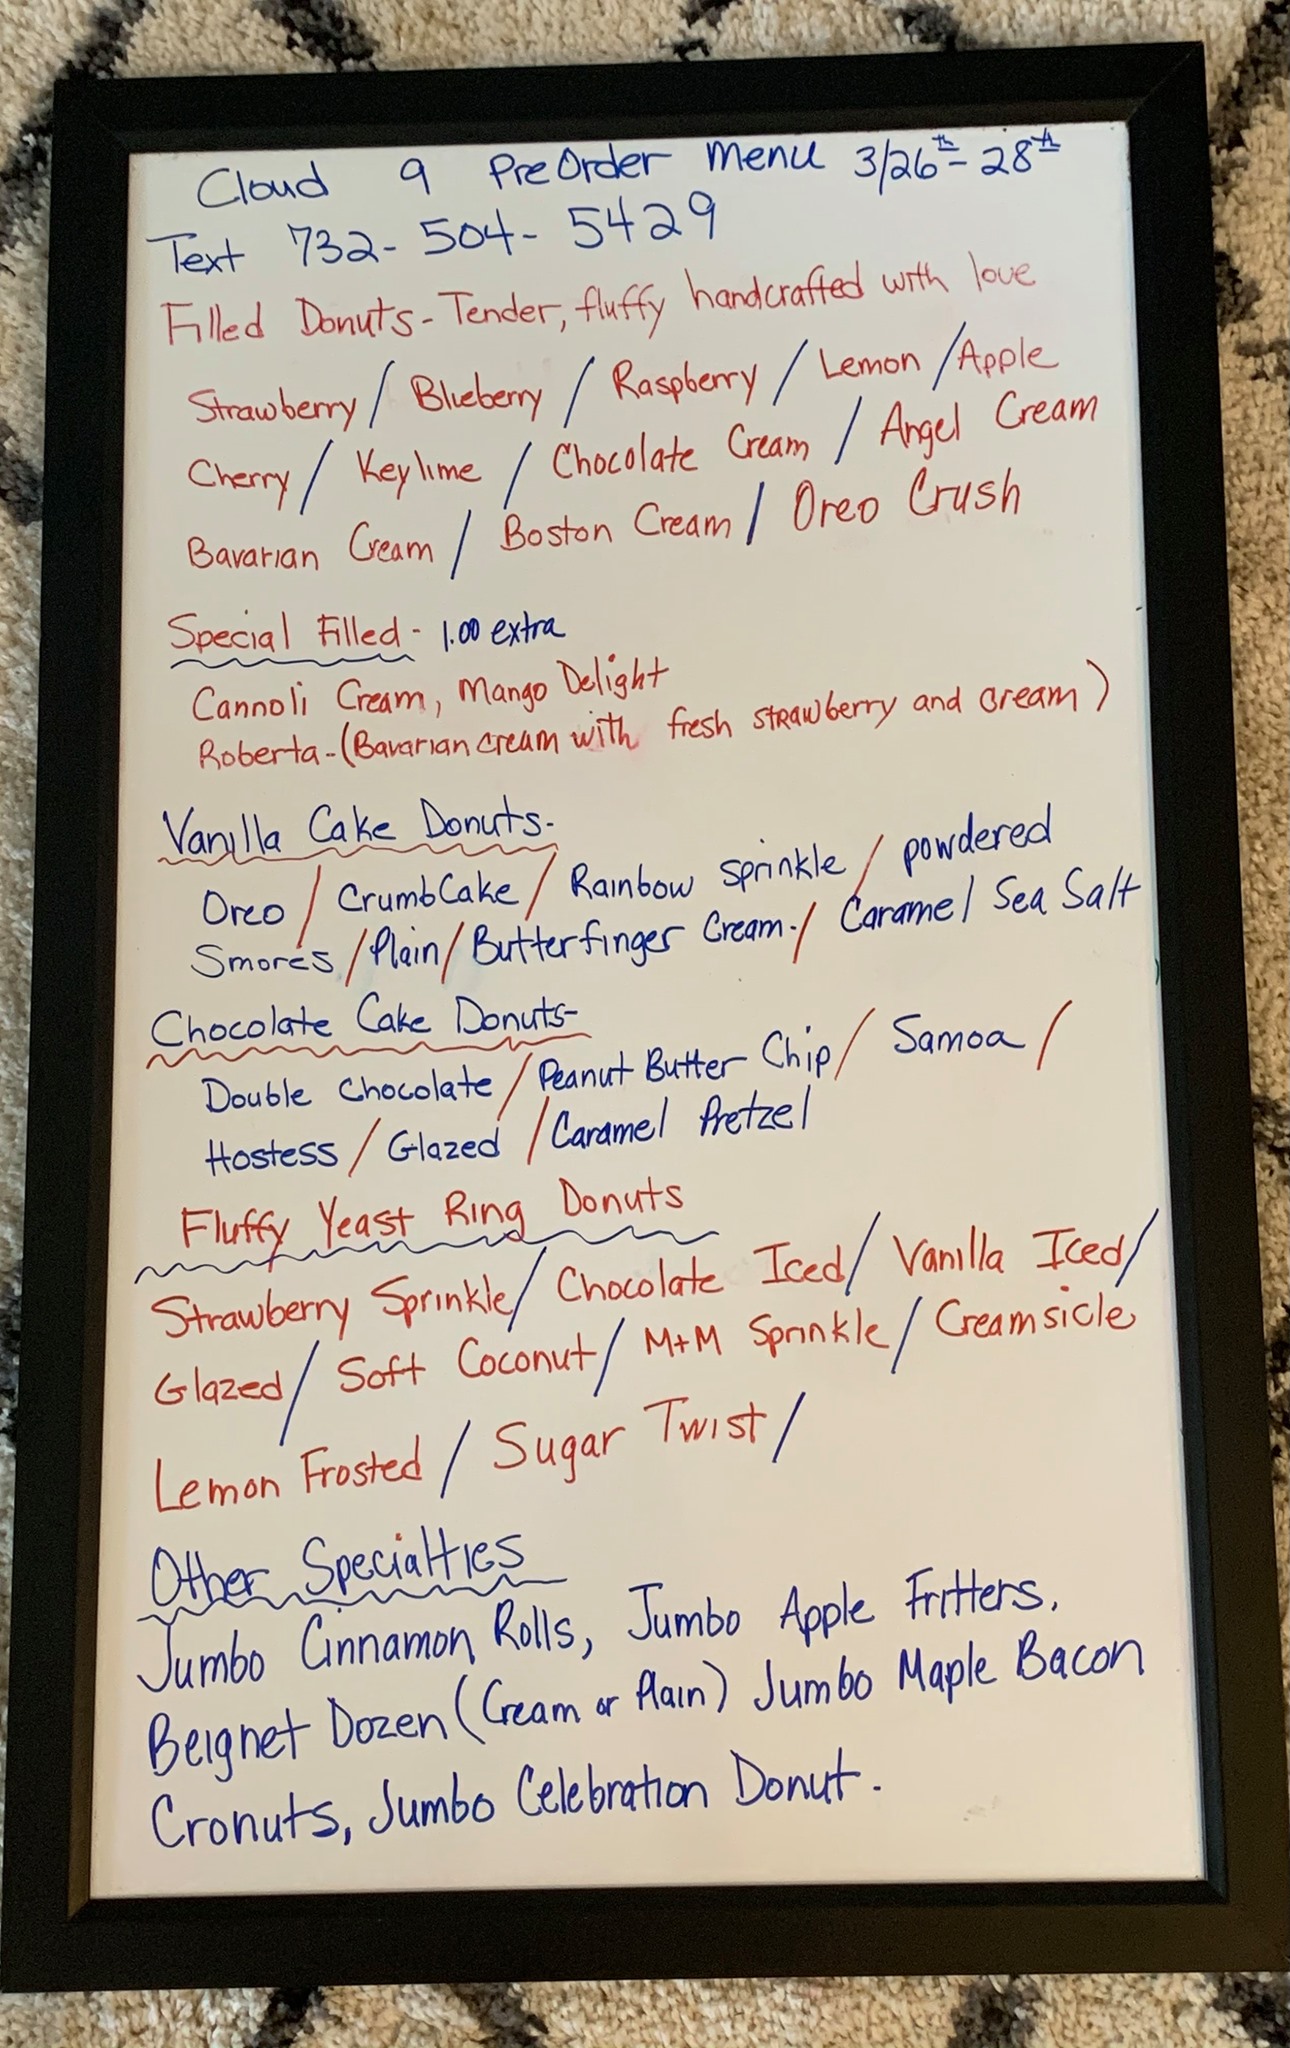 Cloud 9 PreOrder Menu 3/26th - 28th
Text 732-504-5429
Filled Donuts - Tender, fluffy handcrafted with love
Strawberry / Blueberry / Raspberry / Lemon / Apple
Cherry / Keylime / Chocolate Cream / Angel Cream
Bavarian Cream / Boston Cream / Oreo Crush
Special Filled - 1.00 extra
Cannoli Cream, Mango Delight
Roberta - (Bavarian cream with fresh strawberry and cream)
Vanilla Cake Donuts -
Oreo / CrumbCake / Rainbow sprinkle / powdered
Smores / Plain / Butterfinger Cream. / Caramel Sea Salt
Chocolate Cake Donuts -
Double Chocolate / Peanut Butter Chip / Samoa /
Hostess / Glazed / Caramel Pretzel
Fluffy Yeast Ring Donuts
Strawberry Sprinkle / Chocolate Iced / Vanilla Iced /
Glazed / Soft Coconut / M+M Sprinkle / Creamsicle
Lemon Frosted / Sugar Twist /
Other Specialties
Jumbo Cinnamon Rolls, Jumbo Apple Fritters,
Beignet Dozen (Cream or Plain) Jumbo Maple Bacon
Cronuts, Jumbo Celebration Donut.